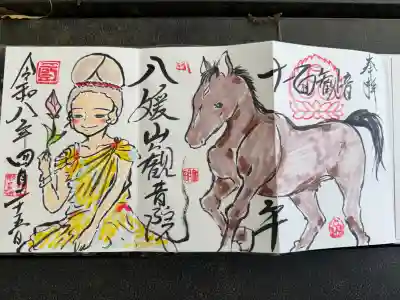 奉拝
十一面観音
午
八媛山観音院
令和八年四月